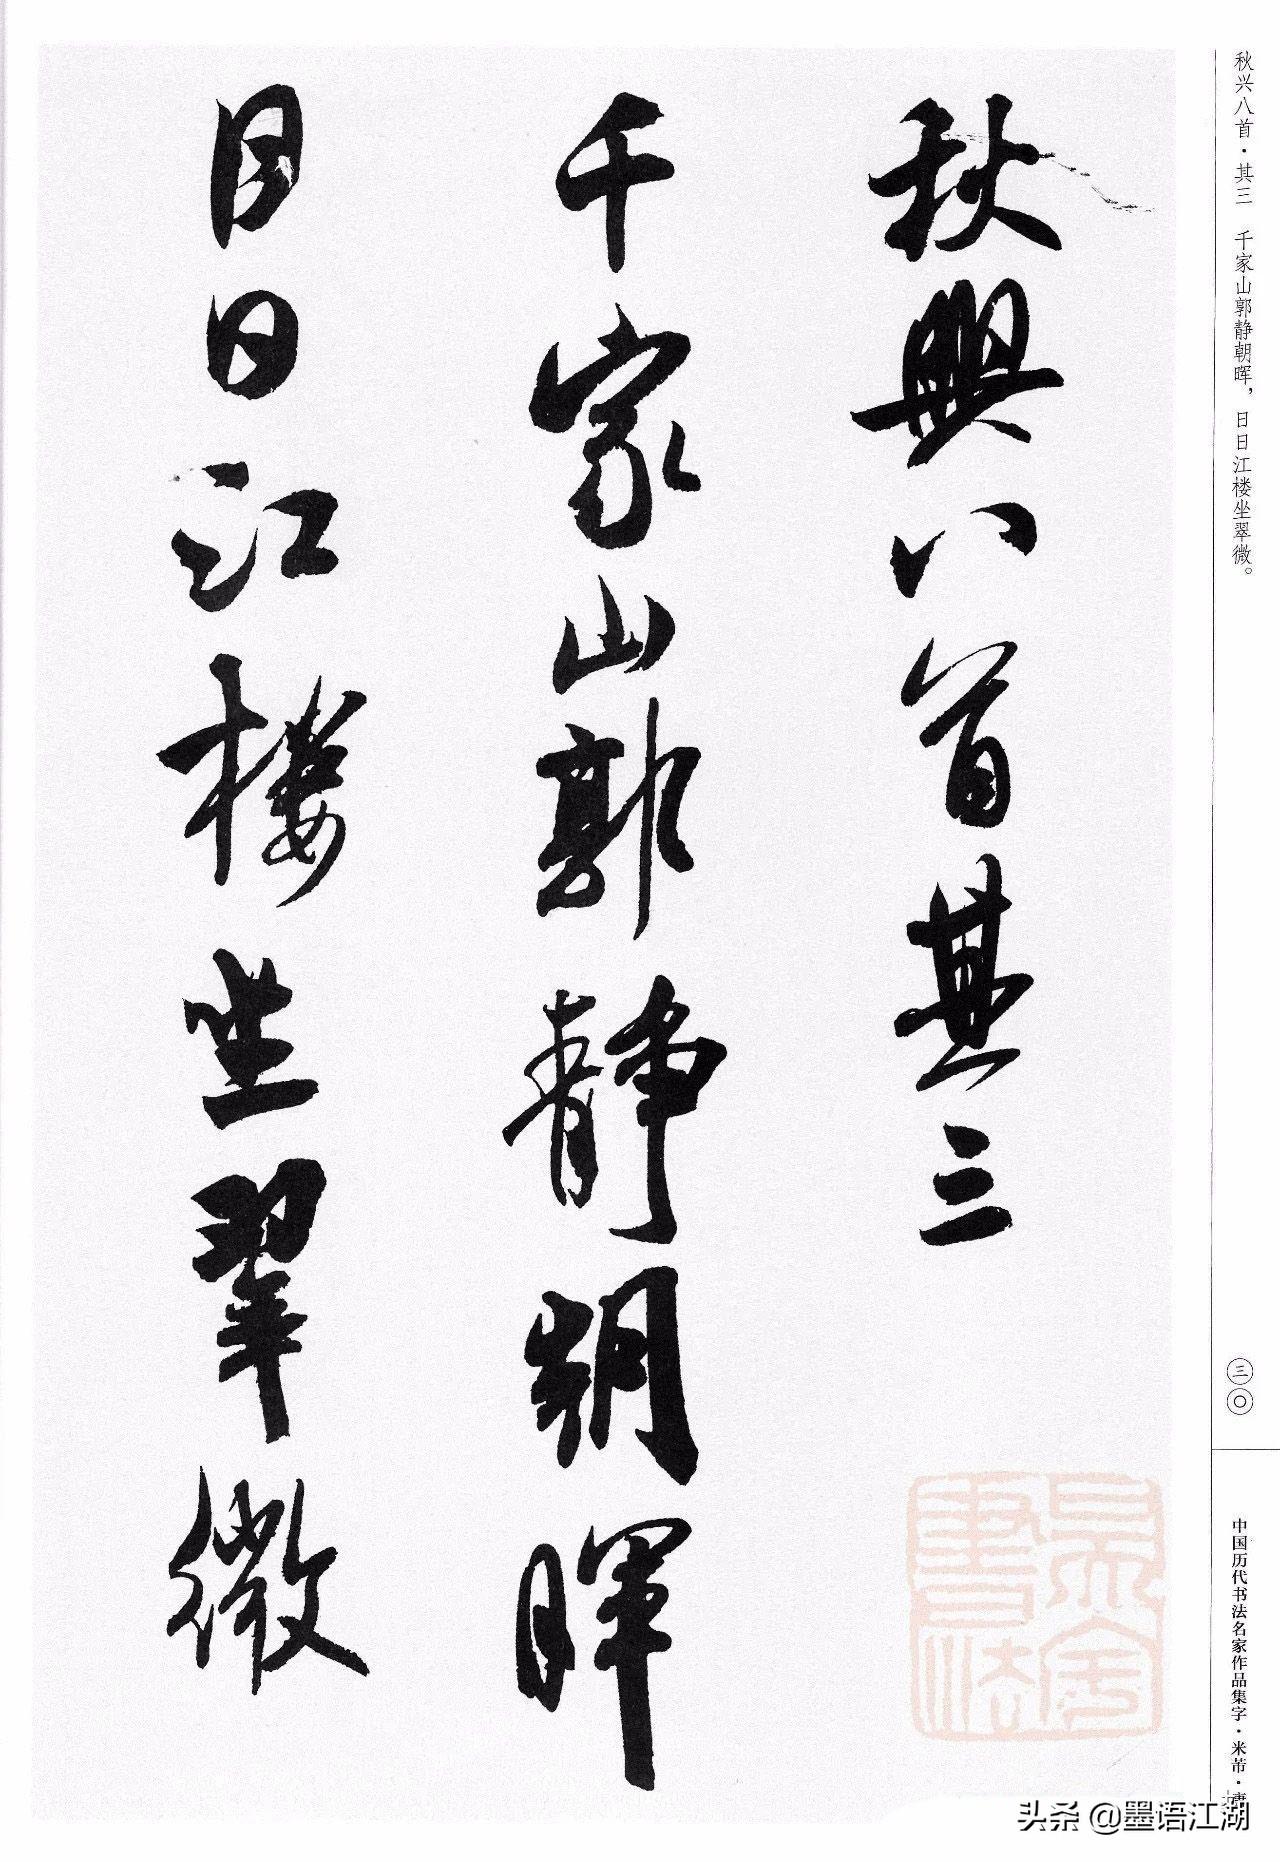 秋兴八首·其三　千家山郭静朝晖，日日江楼坐翠微。
秋興八首其三
千家山郭静朝暉
日日江樓坐翠微
三〇
中国历代书法名家作品集字·米芾·唐
头杀 @墨语江湖